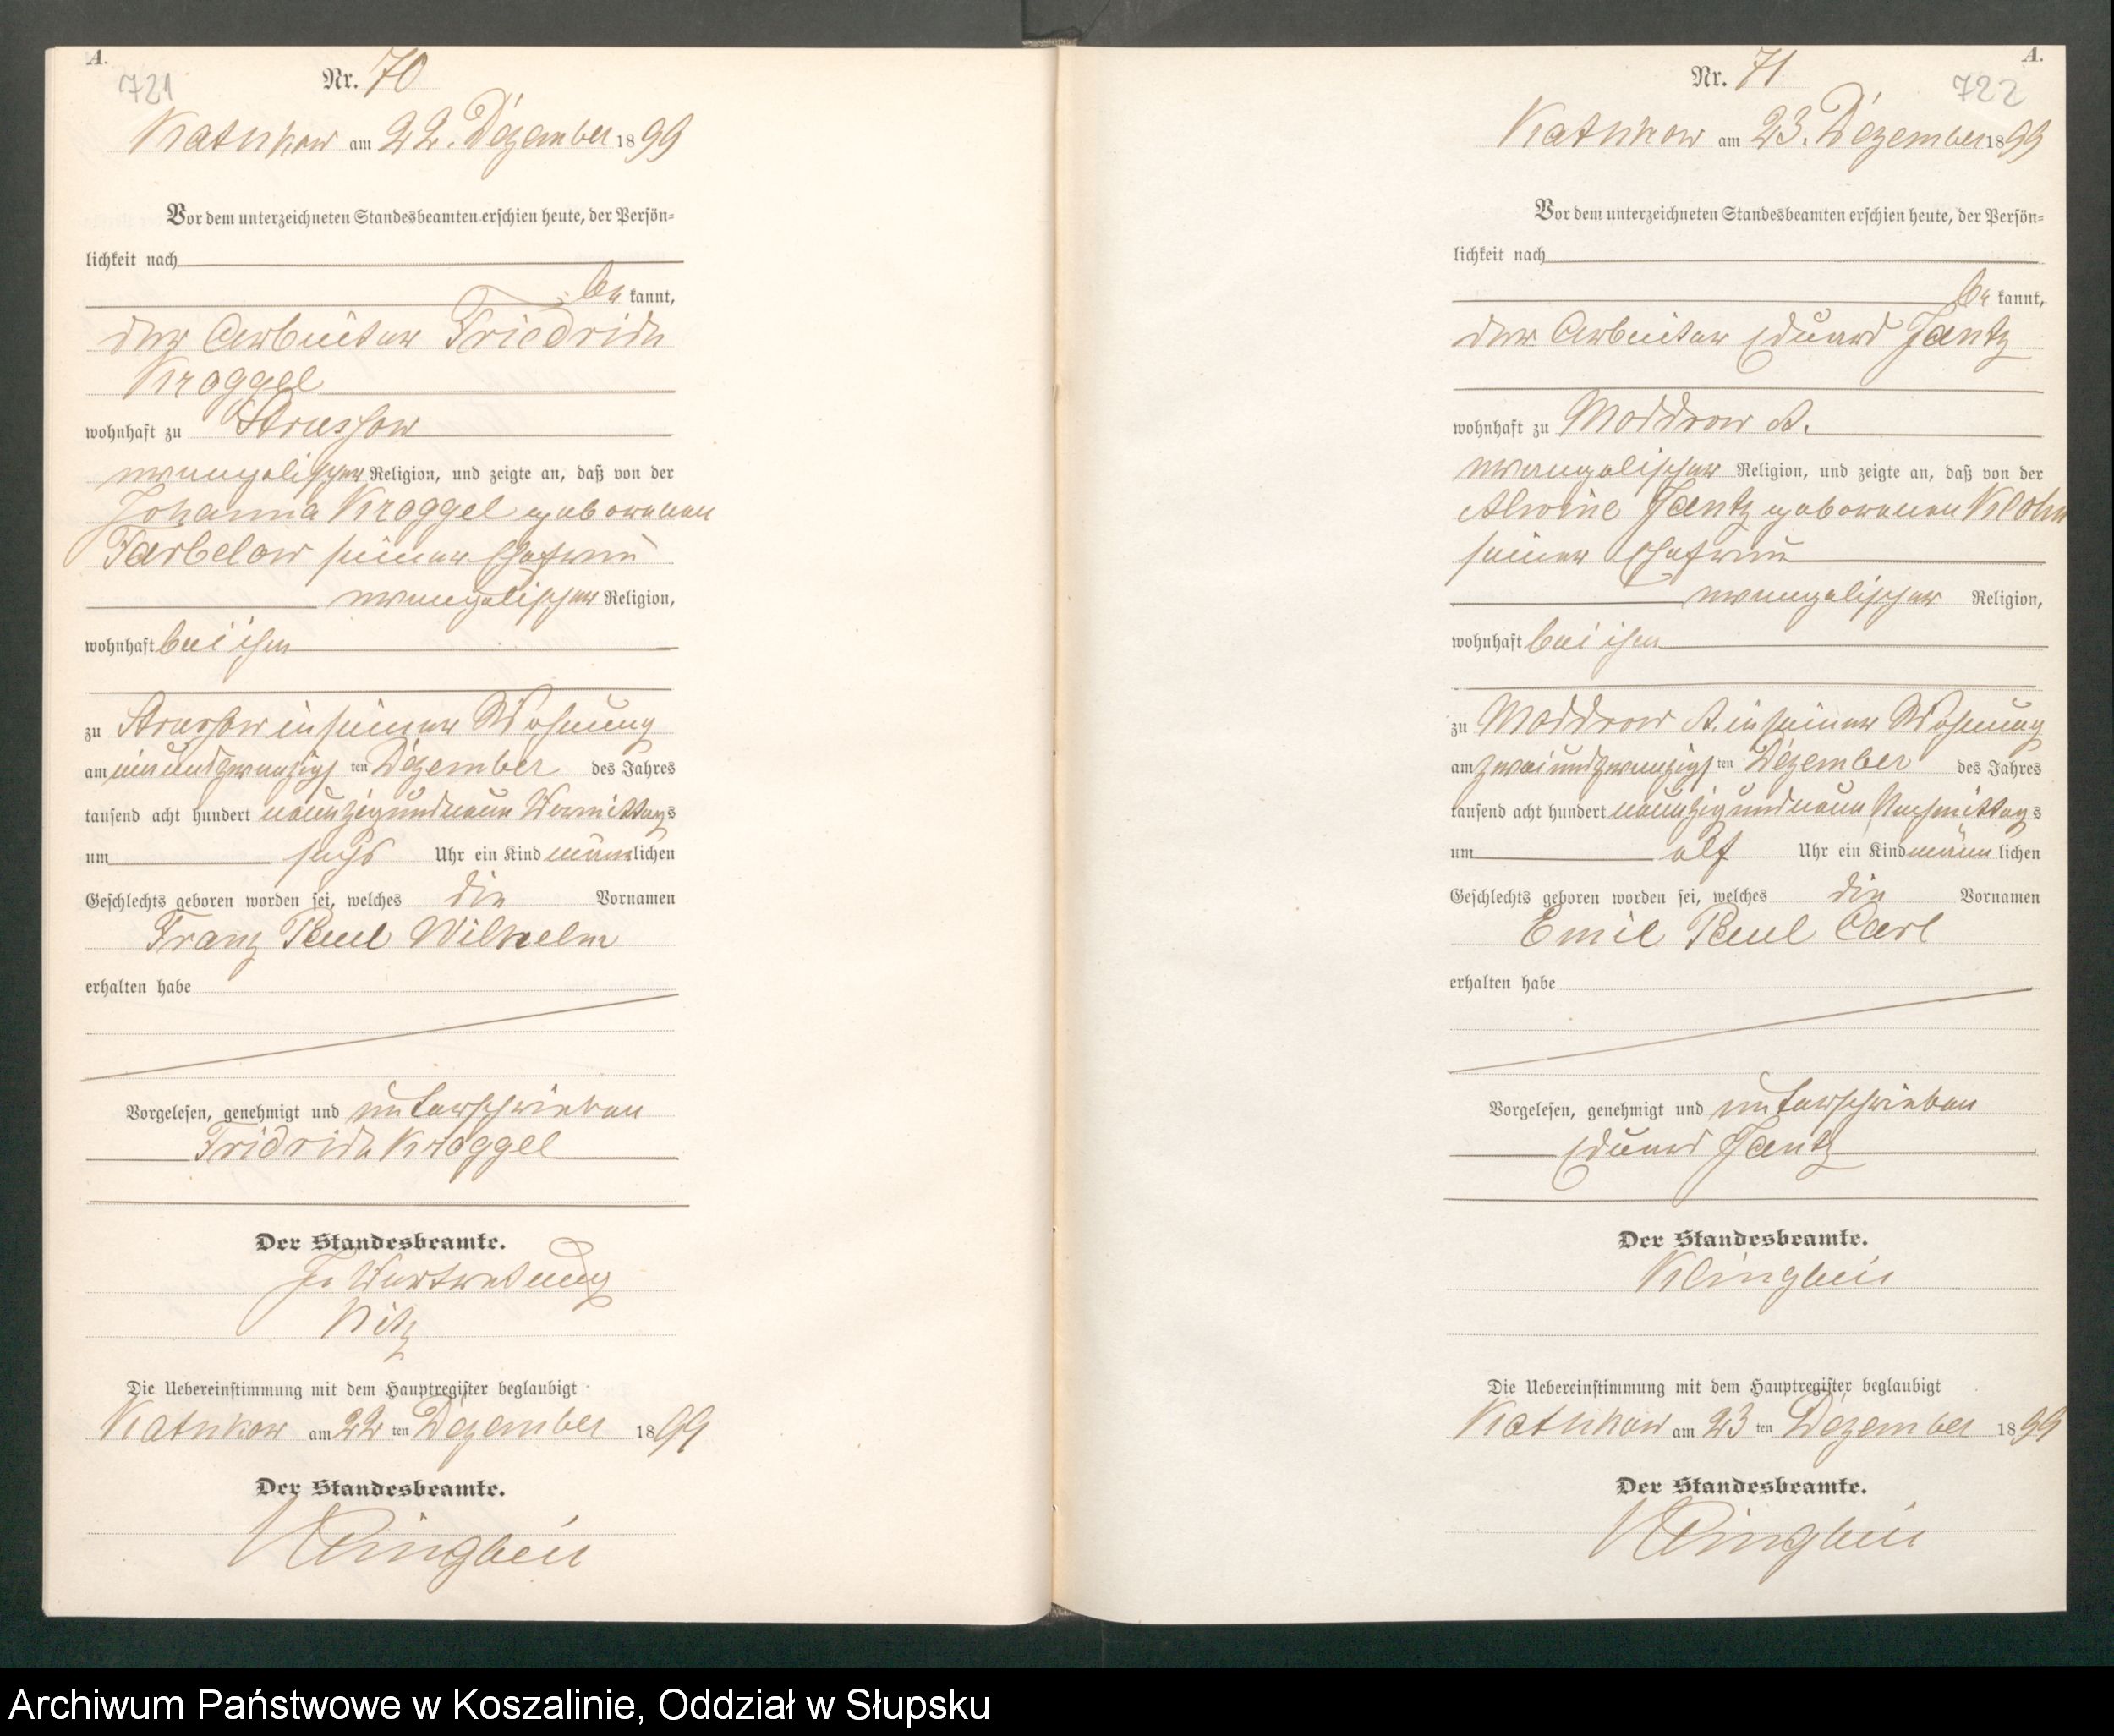 A.
721
Nr. 70
Katnkow am 22. Dezember 1899
Vor dem unterzeichneten Standesbeamten erschien heute, der Persön-
lichkeit nach
be kannt,
der Arbeiter Friedrich
Kroggel
wohnhaft zu Strussow
evangelischer Religion, und zeigte an, daß von der
Johanna Kroggel geborenen
Tarbelow seiner Ehefrau
evangelischer Religion,
wohnhaft bei ihm
zu Strussow in seiner Wohnung
am einundzwanzigs ten Dezember des Jahres
tausend acht hundert neunzig und neun Vormittags
um sechs Uhr ein Kind männ lichen
Geschlechts geboren worden sei, welches die Vornamen
Franz Paul Wilhelm
erhalten habe
Vorgelesen, genehmigt und unterschrieben
Fridrich Kroggel
Der Standesbeamte.
In Vertretung
Kitz
Die Uebereinstimmung mit dem Hauptregister beglaubigt
Katnkow am 22 ten Dezember 1899
Der Standesbeamte.
Klingbeil
A.
722
Nr. 71
Katnkow am 23. Dezember 1899
Vor dem unterzeichneten Standesbeamten erschien heute, der Persön-
lichkeit nach
be kannt,
der Arbeiter Eduard Jantz
wohnhaft zu Moddrow A.
evangelischer Religion, und zeigte an, daß von der
Alwine Jantz geborenen Klohn
seiner Ehefrau
evangelischer Religion,
wohnhaft bei ihm
zu Moddrow A. in seiner Wohnung
am zweiundzwanzigs ten Dezember des Jahres
tausend acht hundert neunzig und neun Nachmittags
um elf Uhr ein Kind männ lichen
Geschlechts geboren worden sei, welches die Vornamen
Emil Paul Carl
erhalten habe
Vorgelesen, genehmigt und unterschrieben
Eduard Jantz
Der Standesbeamte.
Klingbeil
Die Uebereinstimmung mit dem Hauptregister beglaubigt
Katnkow am 23 ten Dezember 1899
Der Standesbeamte.
Klingbeil
Archiwum Państwowe w Koszalinie, Oddział w Słupsku